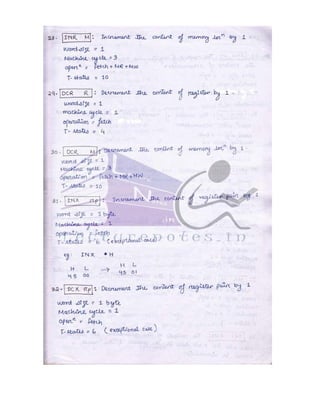 28. INR M : Increment the content of memory locⁿ by 1
wordsize = 1
Machine cycle = 3
operⁿ = fetch + MR + MW
T-states = 10
29. DCR R : Decrement the content of register by 1
wordsize = 1
machine cycle = 1
operation = fetch
T-states = 4
30. DCR M : Decrement the content of memory locⁿ by 1
word size = 1
Machine cycle = 3
Operation = fetch + MR + MW
T-states = 10
31. INX rp : Increment the content of register pair by 1
word size = 1 byte
Machine cycle = 1
operation = fetch
T-states = 6 (exceptional case)
eg: INX H
H L → H L
45 00 45 01
32. DCX rp : Decrement the content of register pair by 1
word size = 1 byte
Machine cycle = 1
operⁿ = fetch
T-states = 6 (exceptional case)